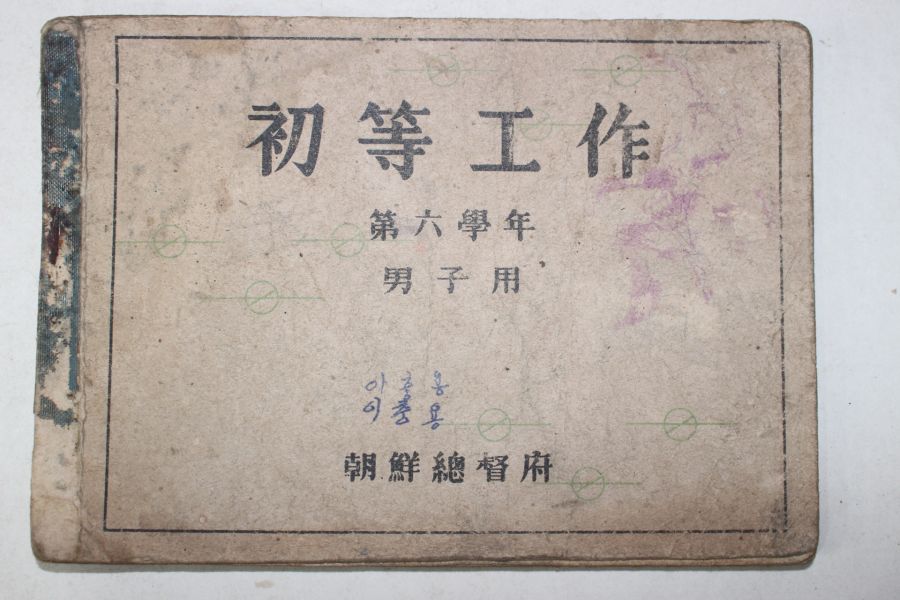 初等工作
第六學年
男子用
이춘용
朝鮮總督府